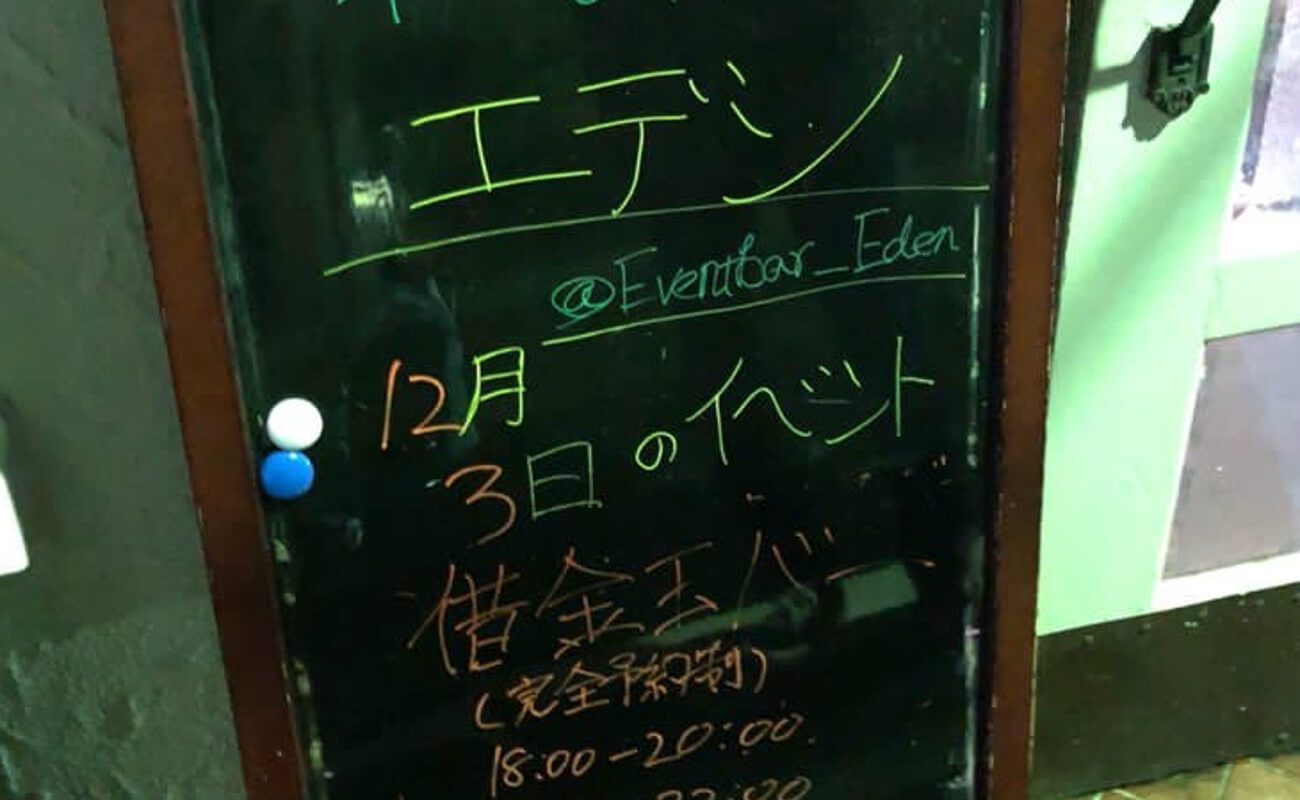 エデン
@Eventbar_Eden
12月
3日のイベント
借金玉バー
(完全予約制)
18:00-20:00
22:00